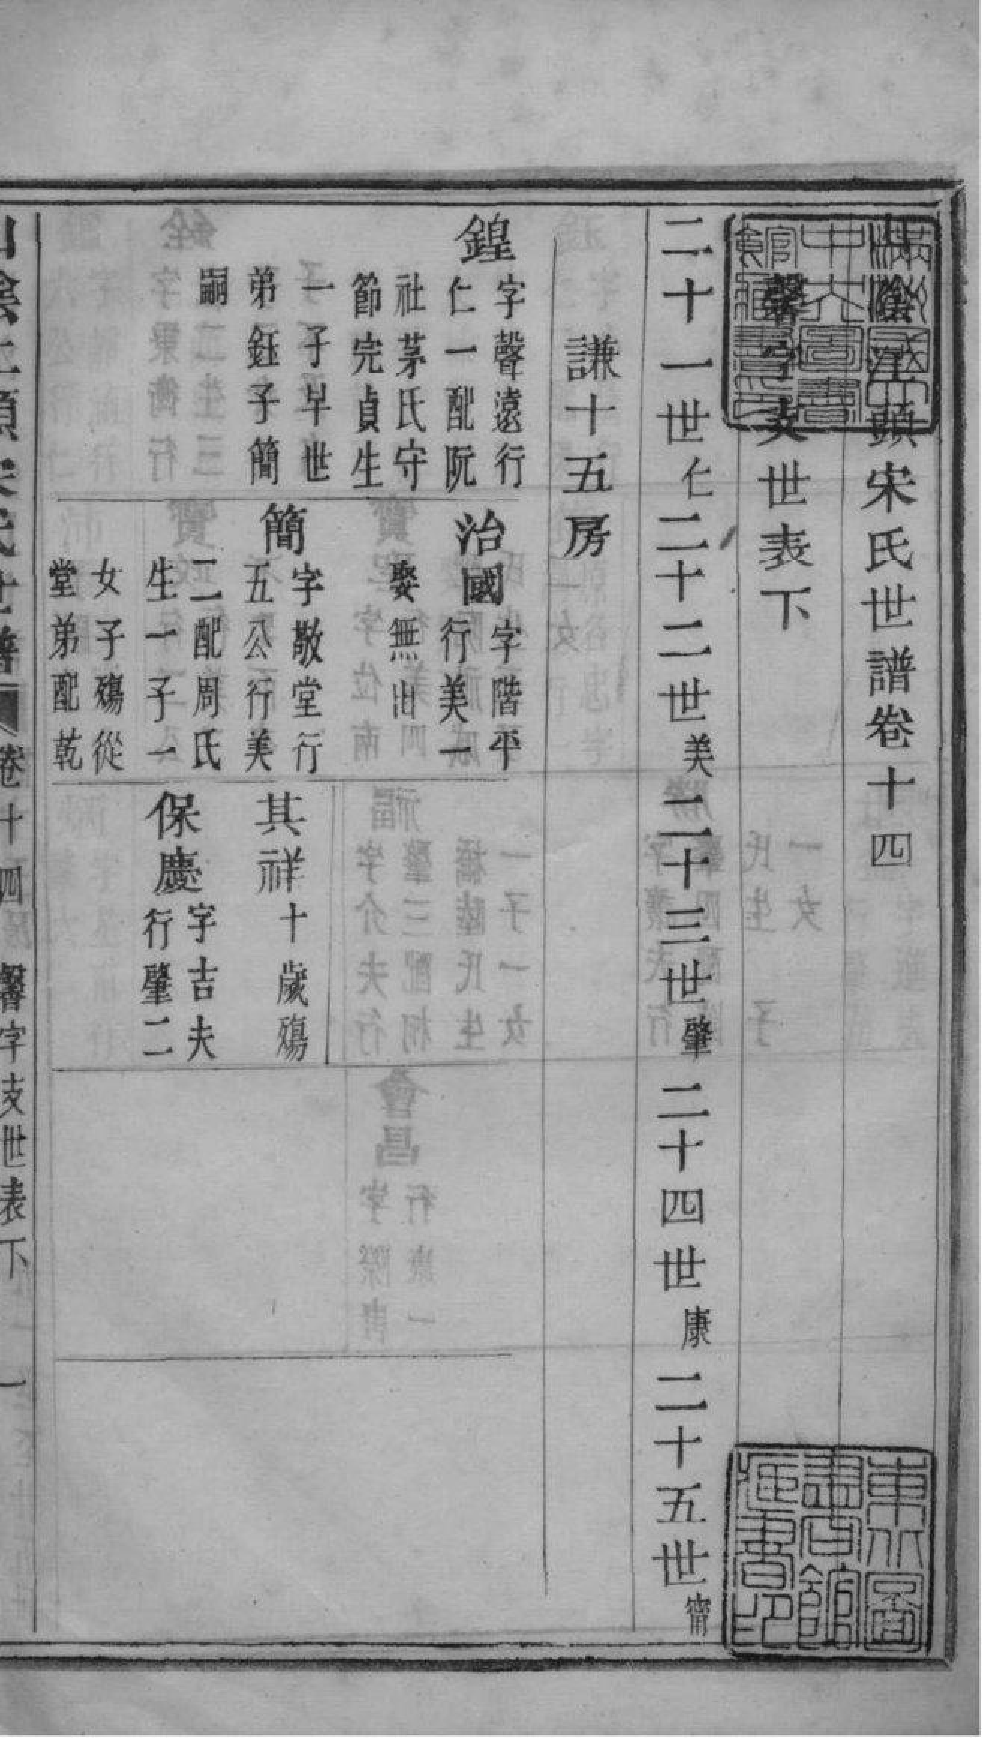 山陰江頭宋氏世譜卷十四
馨字支世表下
二十一世仁二十二世美二十三世肇二十四世康二十五世甯
謙十五房
鍠
字聲遠行
仁一配阮
社茅氏守
節完貞生
一子早世
弟鈺子簡
嗣
治國
字階平
行美一
娶無出
簡
字敬堂行
五公行美
二配周氏
生一子一
女子殤從
堂弟配乾
其祥
十歲殤
保慶
字吉夫
行肇二
山陰江頭宋氏世譜
卷十四
馨字支世表下
一